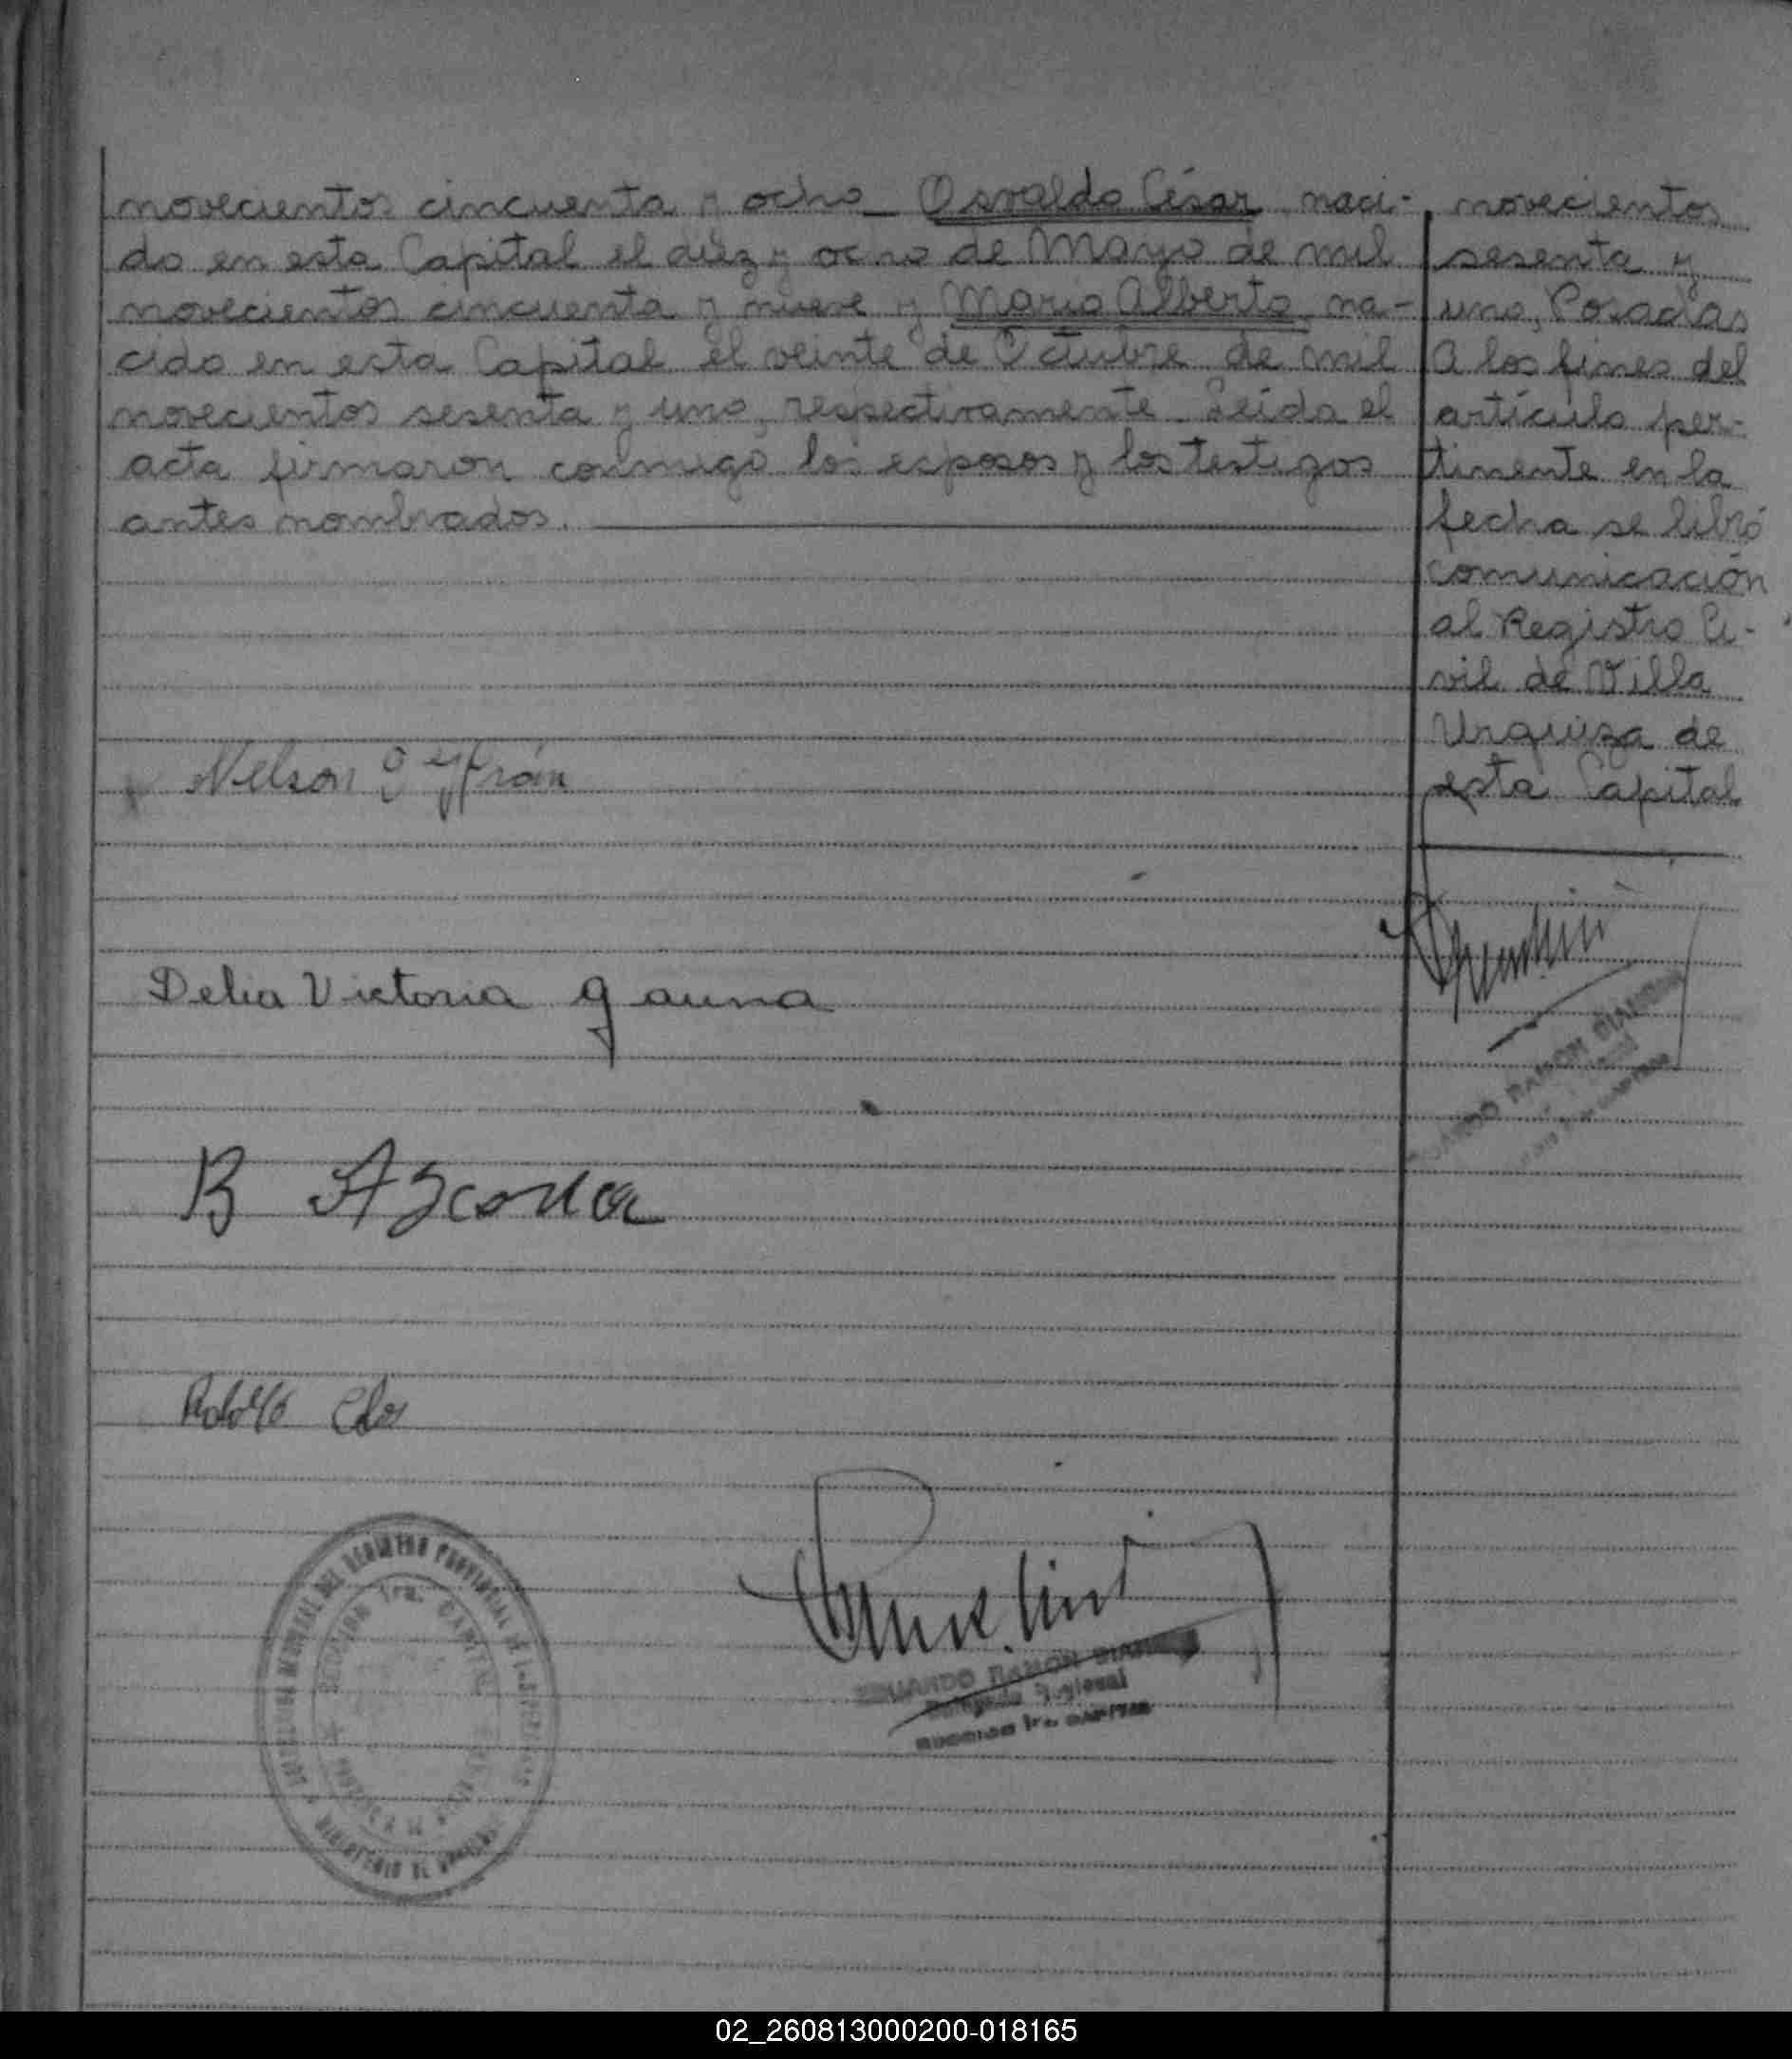 novecientos cincuenta y ocho _ Osvaldo César, naci-
do en esta Capital el diez y ocho de Mayo de mil
novecientos cincuenta y nueve y Mario Alberto, na-
cido en esta Capital el veinte de Octubre de mil
novecientos sesenta y uno, respectivamente. Leída el
acta firmaron conmigo los esposos y los testigos
antes nombrados.
novecientos
sesenta y
uno, Posadas
A los fines del
artículo per-
tinente en la
fecha se libró
comunicación
al Registro Ci-
vil de Villa
Urquiza de
esta Capital
Nelson
Delia Victoria Gauna
B Azcona
Rodolfo
RAMON
SECCION 1ra. CAPITAL
DEL REGISTRO PROVINCIAL DE LAS PERSONAS
MINISTERIO DE
EDUARDO RAMON
Delegado Regional
SECCION 1ra. CAPITAL
02_260813000200-018165